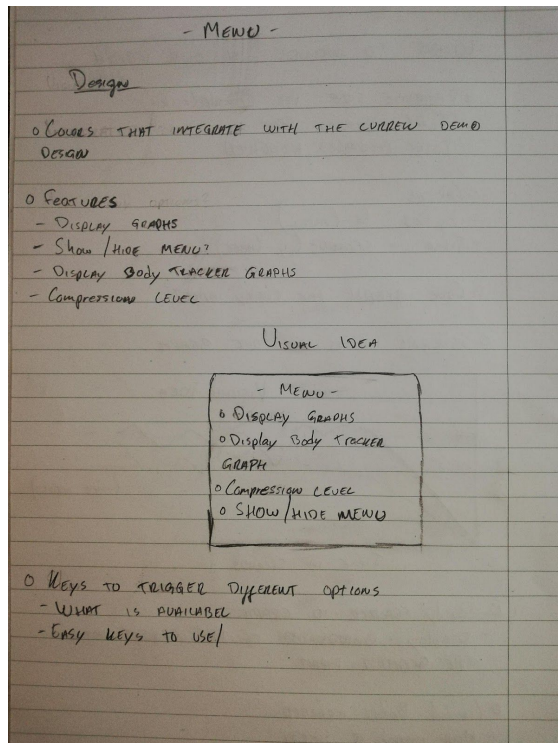 - MENU -
Design
o COLORS THAT INTEGRATE WITH THE CURREN DEMO
DESIGN
o FEATURES
- DISPLAY GRAPHS
- SHOW / HIDE MENU?
- DISPLAY BODY TRACKER GRAPHS
- COMPRESSION LEVEL
VISUAL IDEA
- MENU -
o DISPLAY GRAPHS
o Display Body Tracker
GRAPH
o COMPRESSION LEVEL
o SHOW / HIDE MENU
o KEYS TO TRIGGER DIFFERENT OPTIONS
- WHAT IS AVAILABEL
- EASY KEYS TO USE/